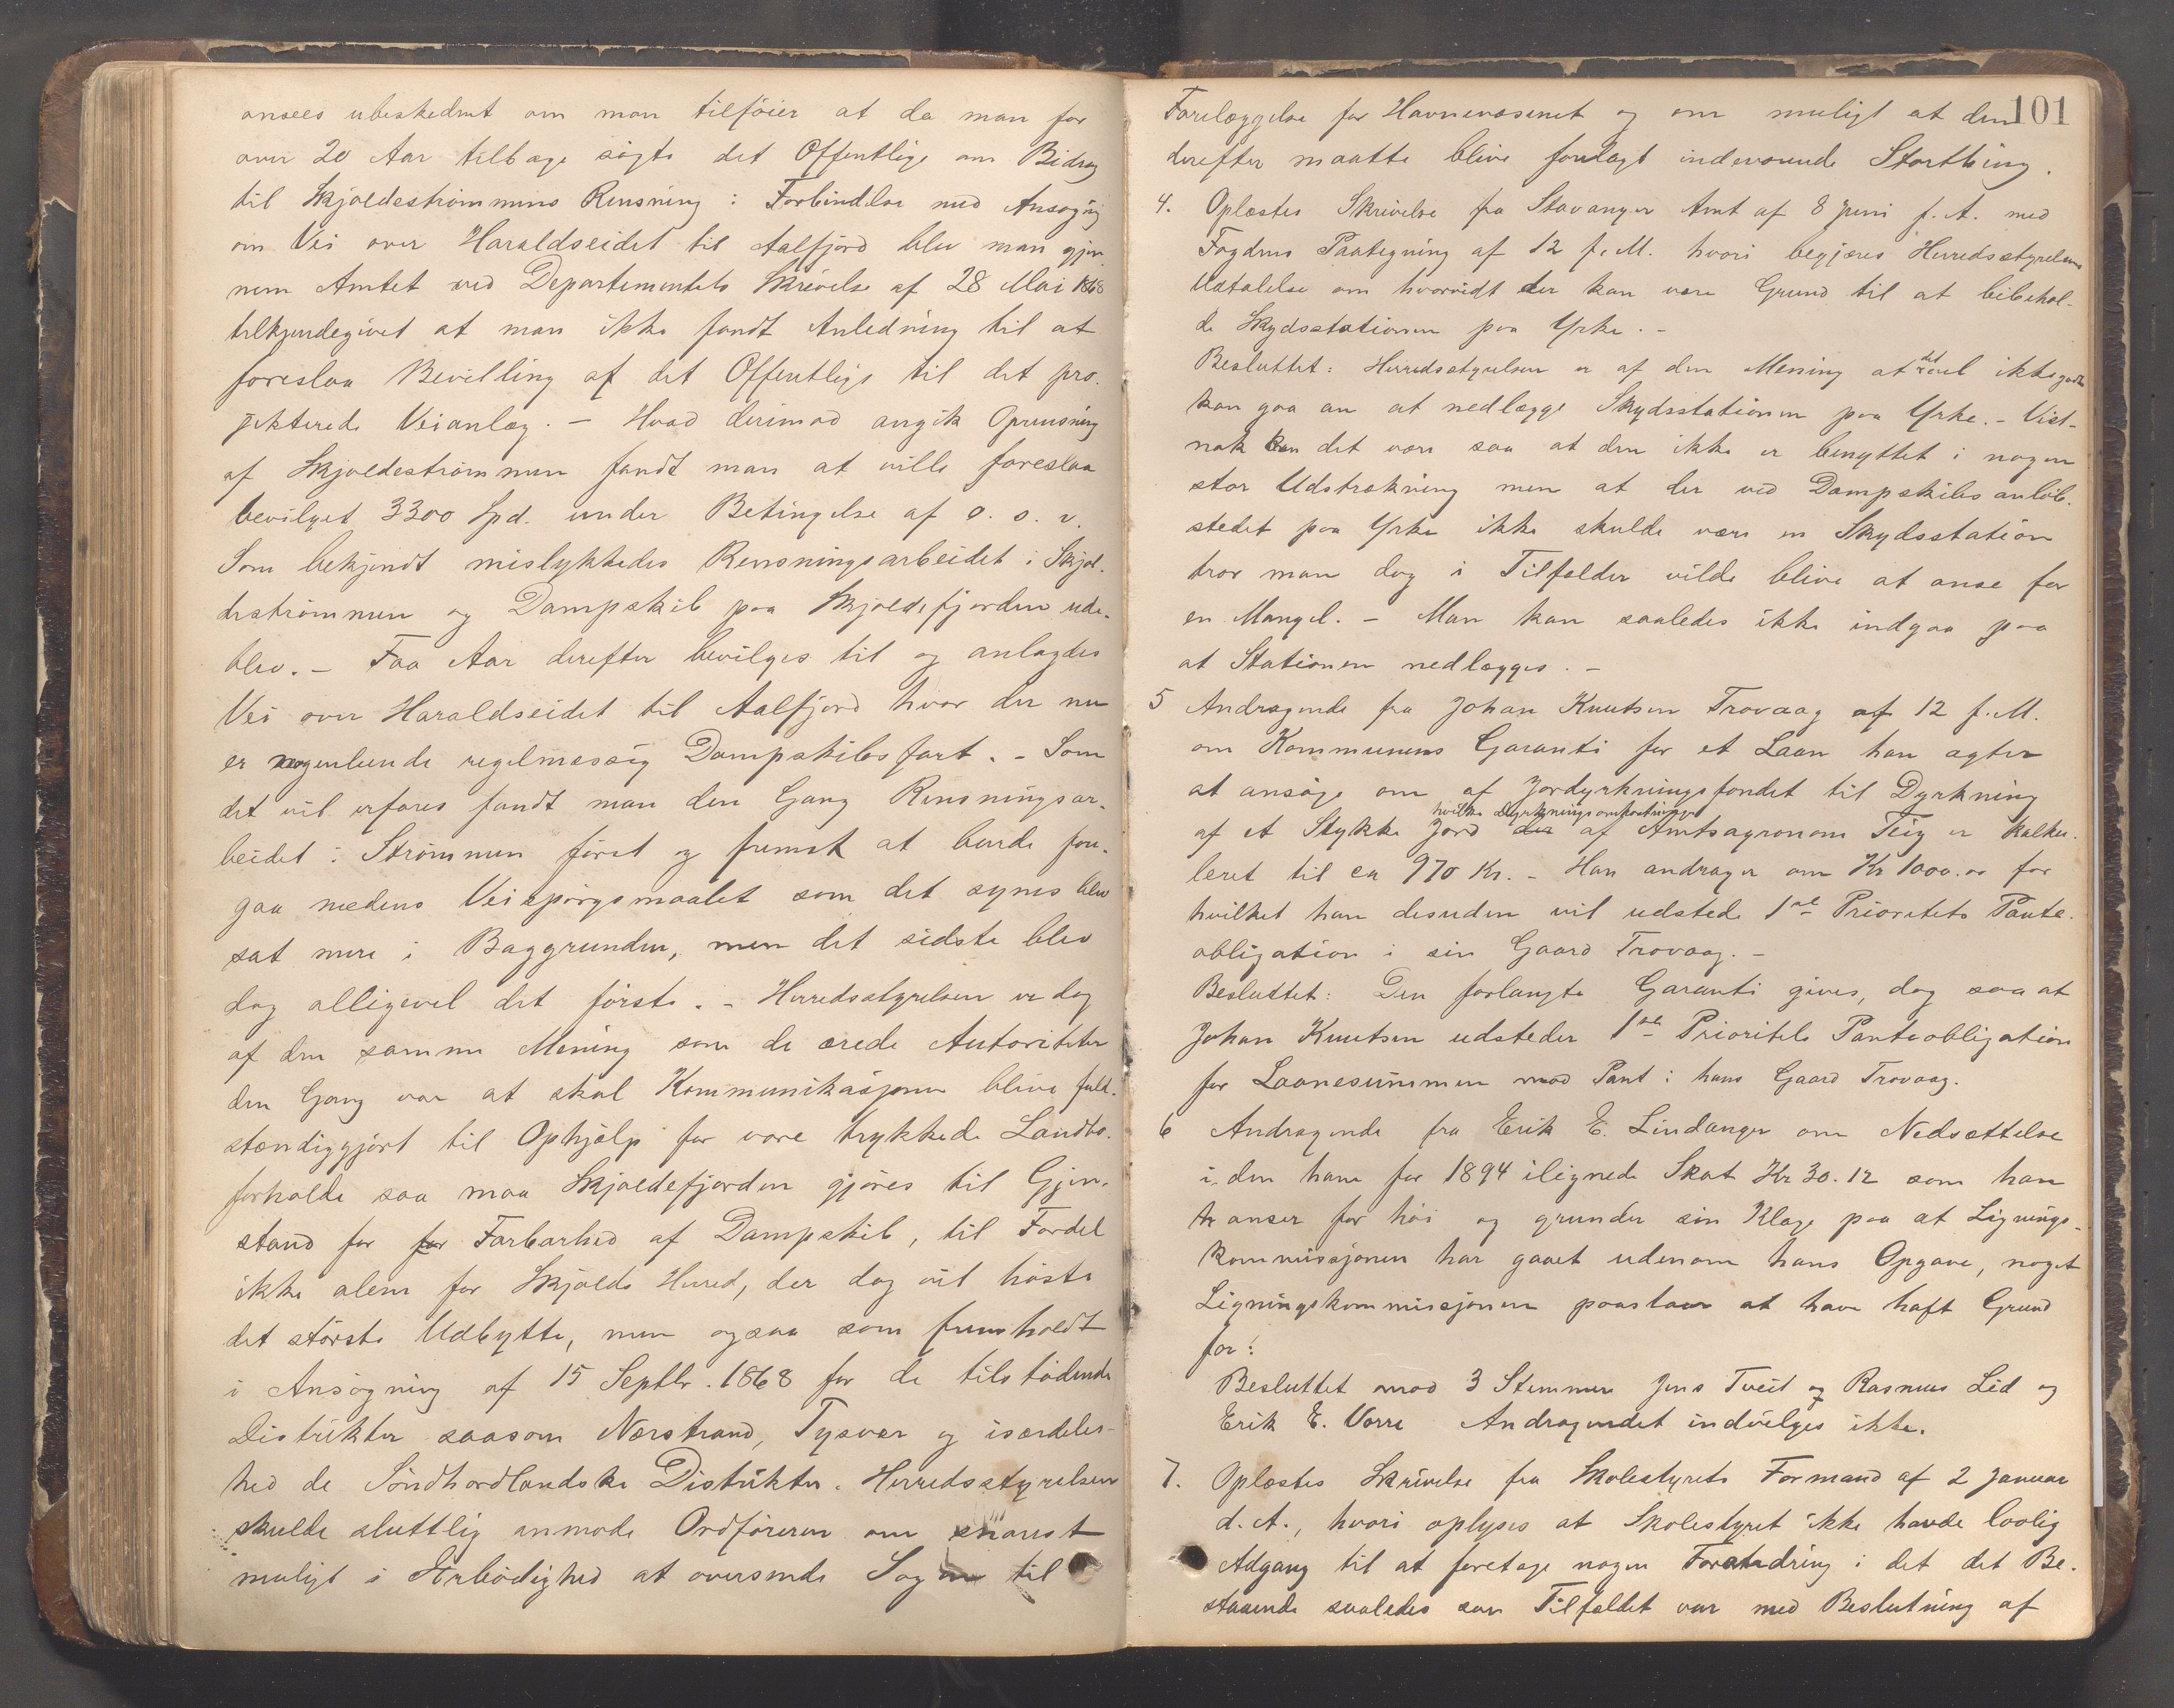 ansees ubeskedent om man tilføier at da man for
over 20 Aar tilbage søgte det Offentlige om Bidrag
til Skjoldestrømmens Rensning i Forbindelse med Ansøgnig
om Vei over Haraldseidet til Aalfjord blev man gjen-
nem Amtet ved Departementets Skrivelse af 28 Mai 1868
tilkjendegivet at man ikke fandt Anledning til at
foreslaa Bevilling af det Offentlige til det pro-
jekterede Veianlæg. – Hvad derimod angik Oprensning
af Skjoldestrømmen fandt man at ville foreslaa
bevilget 3300 Spd. under Betingelse af o. s. v.
Som bekjendt mislykkedes Rensningsarbeidet i Skjol-
destrømmen og Dampskib paa Skjoldefjorden ude-
blev. – Faa Aar derefter bevilges til og anlagdes
Vei over Haraldseidet til Aalfjord hvor der nu
er nogenlunde regelmæssig Dampskibsfart. – Som
det vil erfares fandt man den Gang Rensningsar-
beidet i Strømmen først og fremst at burde fore-
gaa medens Veispørgsmaalet som det synes blev
sat mere i Baggrunden, men det sidste blev
dog alligevel det første. – Herredsstyrelsen er dog
af den samme Mening som de ærede Autoriteter
den Gang var at skal Kommunikasjonen blive fuld-
stændiggjort til Ophjælp for vore trykkede Landbo-
forholde saa maa Skjoldefjorden gjøres til Gjen-
stand for for Farbarhed af Dampskib, til Fordel
ikke alene for Skjolde Herred, der dog vil høste
det største Udbytte, men ogsaa som fremholdt
i Ansøgning af 15 Septbr. 1868 for de tilstødende
Distrikter saasom Nærstrand, Tysvær og isærdeles-
hed de Søndhordlandske Distrikter. Herredsstyrelsen
skulde sluttlig anmode Ordføreren om snarest
muligt i Ærbødighed at oversende Sagen til
101
Forelæggelse for Havnevæsenet og om muligt at den
derefter maatte blive forelagt indeværende Storthing.
4. Oplæstes Skrivelse fra Stavanger Amt af 8 Juni f. A. med
Fogdens Paategning af 12 f. M. hvori begjæres Herredsstyrelsens
Udtalelse om hvorvidt der kan være Grund til at bibehol-
de Skydsstationen paa Yrke. –
Besluttet: Herredsstyrelsen er af den Mening at det vel ikke godt
kan gaa an at nedlægge Skydsstationen paa Yrke. – Vist-
nok kan det være saa at den ikke er benyttet i nogen
stor Udstrækning men at der ved Dampskibsanløb-
stedet paa Yrke ikke skulde være en Skydsstation
tror man dog i Tilfælder vilde blive at anse for
en Mangel. – Man kan saaledes ikke indgaa paa
at Stationen nedlægges. –
5 Andragende fra Johan Knutsen Trovaag af 12 f. M.
om Kommunens Garanti for et Laan han agter
at ansøge om af Jordyrkningsfondet til Dyrkning
hvilke Dyrkningsomkostninger
af et Stykke Jord der af Amtsagronom Teig er kalku-
leret til ca 970 Kr. – Han andrager om Kr 1000.00 for
hvilket han desuden vil udstede 1ste Prioritets Pante-
obligation i sin Gaard Trovaag. –
Besluttet: Den forlangte Garanti gives, dog saa at
Johan Knutsen udsteder 1ste Prioritets Panteobligation
for Laanesummen mod Pant i hans Gaard Trovaag.
6 Andragende fra Erik E. Lindanger om Nedsættelse
i den ham for 1894 ilignede Skat Kr 30.12 som han
anser for høi og grunder sin Klage paa at Lignings-
kommissjonen har gaaet udenom hans Opgave, noget
Ligningskommissjonen paastaar at have haft Grund
for:
Besluttet mod 3 Stemmer Jens Tveit og Rasmus Lid og
Erik E. Vorre Andragendet indvilges ikke.
7. Oplæstes Skrivelse fra Skolestyrets Formand af 2 Januar
d. A., hvori oplyses at Skolestyret ikke havde lovlig
Adgang til at foretage nogen Forandring i det det Be-
staaende saaledes som Tilfældet var med Beslutning af